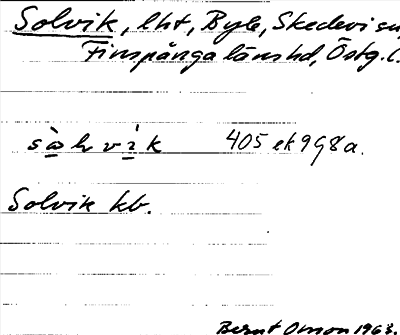 Solvik, lht, Byle, Skedevi sn,
Finspånga länshd, Östg. l.
sòlvìk 405 ek 998a.
Solvik kb.
Bernt Oman 1963.